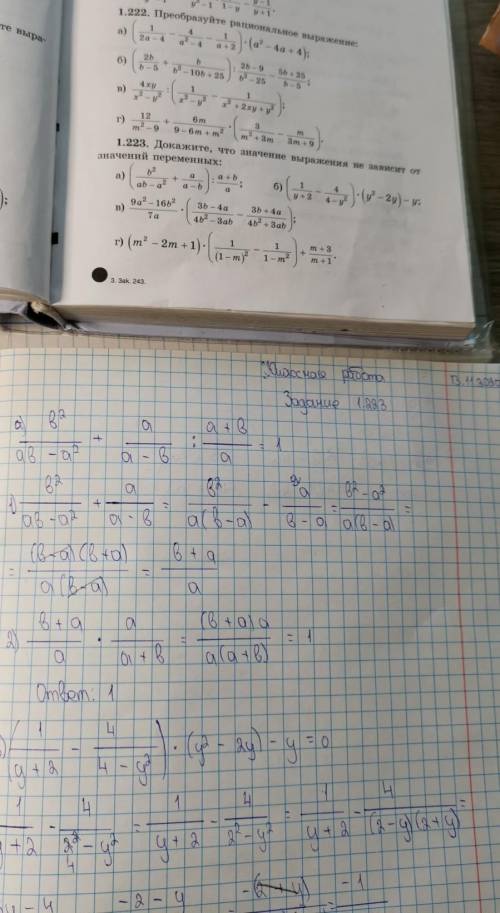 1.222. Преобразуйте рациональное выражение:
а) (1/(2a − 4) − 4/(a² − 4) − 1/(a + 2)) · (a² − 4a + 4);
б) (2b/(b − 5) + b/(b² − 10b + 25)) : (2b − 9)/(b² − 25) − (5b + 25)/(b − 5);
в) 4xy/(x² − y²) : (1/(x² − y²) − 1/(x² + 2xy + y²));
г) 12/(m² − 9) + 6m/(9 − 6m + m²) · (3/(m² + 3m) − m/(3m + 9)).
1.223. Докажите, что значение выражения не зависит от
значений переменных:
а) (b²/(ab − a²) + a/(a − b)) : (a + b)/a; б) (1/(y + 2) − 4/(4 − y²)) · (y² − 2y) − y;
в) (9a² − 16b²)/7a · ((3b − 4a)/(4b² − 3ab) − (3b + 4a)/(4b² + 3ab));
г) (m² − 2m + 1) · (1/(1 − m)² − 1/(1 − m²)) + (m + 3)/(m + 1).
3. Зак. 243.
Классная работа
Задание 1.223
а) b²/(ab − a²) + a/(a − b) : (a + b)/a = 1
1) b²/(ab − a²) + a/(a − b) = b²/(a(b − a)) − a/(b − a) = (b² − a²)/(a(b − a)) =
= (b − a)(b + a)/(a(b − a)) = (b + a)/a
2) (b + a)/a · a/(a + b) = (b + a)a/(a(a + b)) = 1
Ответ: 1
(1/(y + 2) − 4/(4 − y²)) · (y² − 2y) − y = 0
1/(y + 2) − 4/(2² − y²) = 1/(y + 2) − 4/(2² − y²) = 1/(y + 2) − 4/((2 − y)(2 + y)) =
−2 − y −(2 + y) = −1